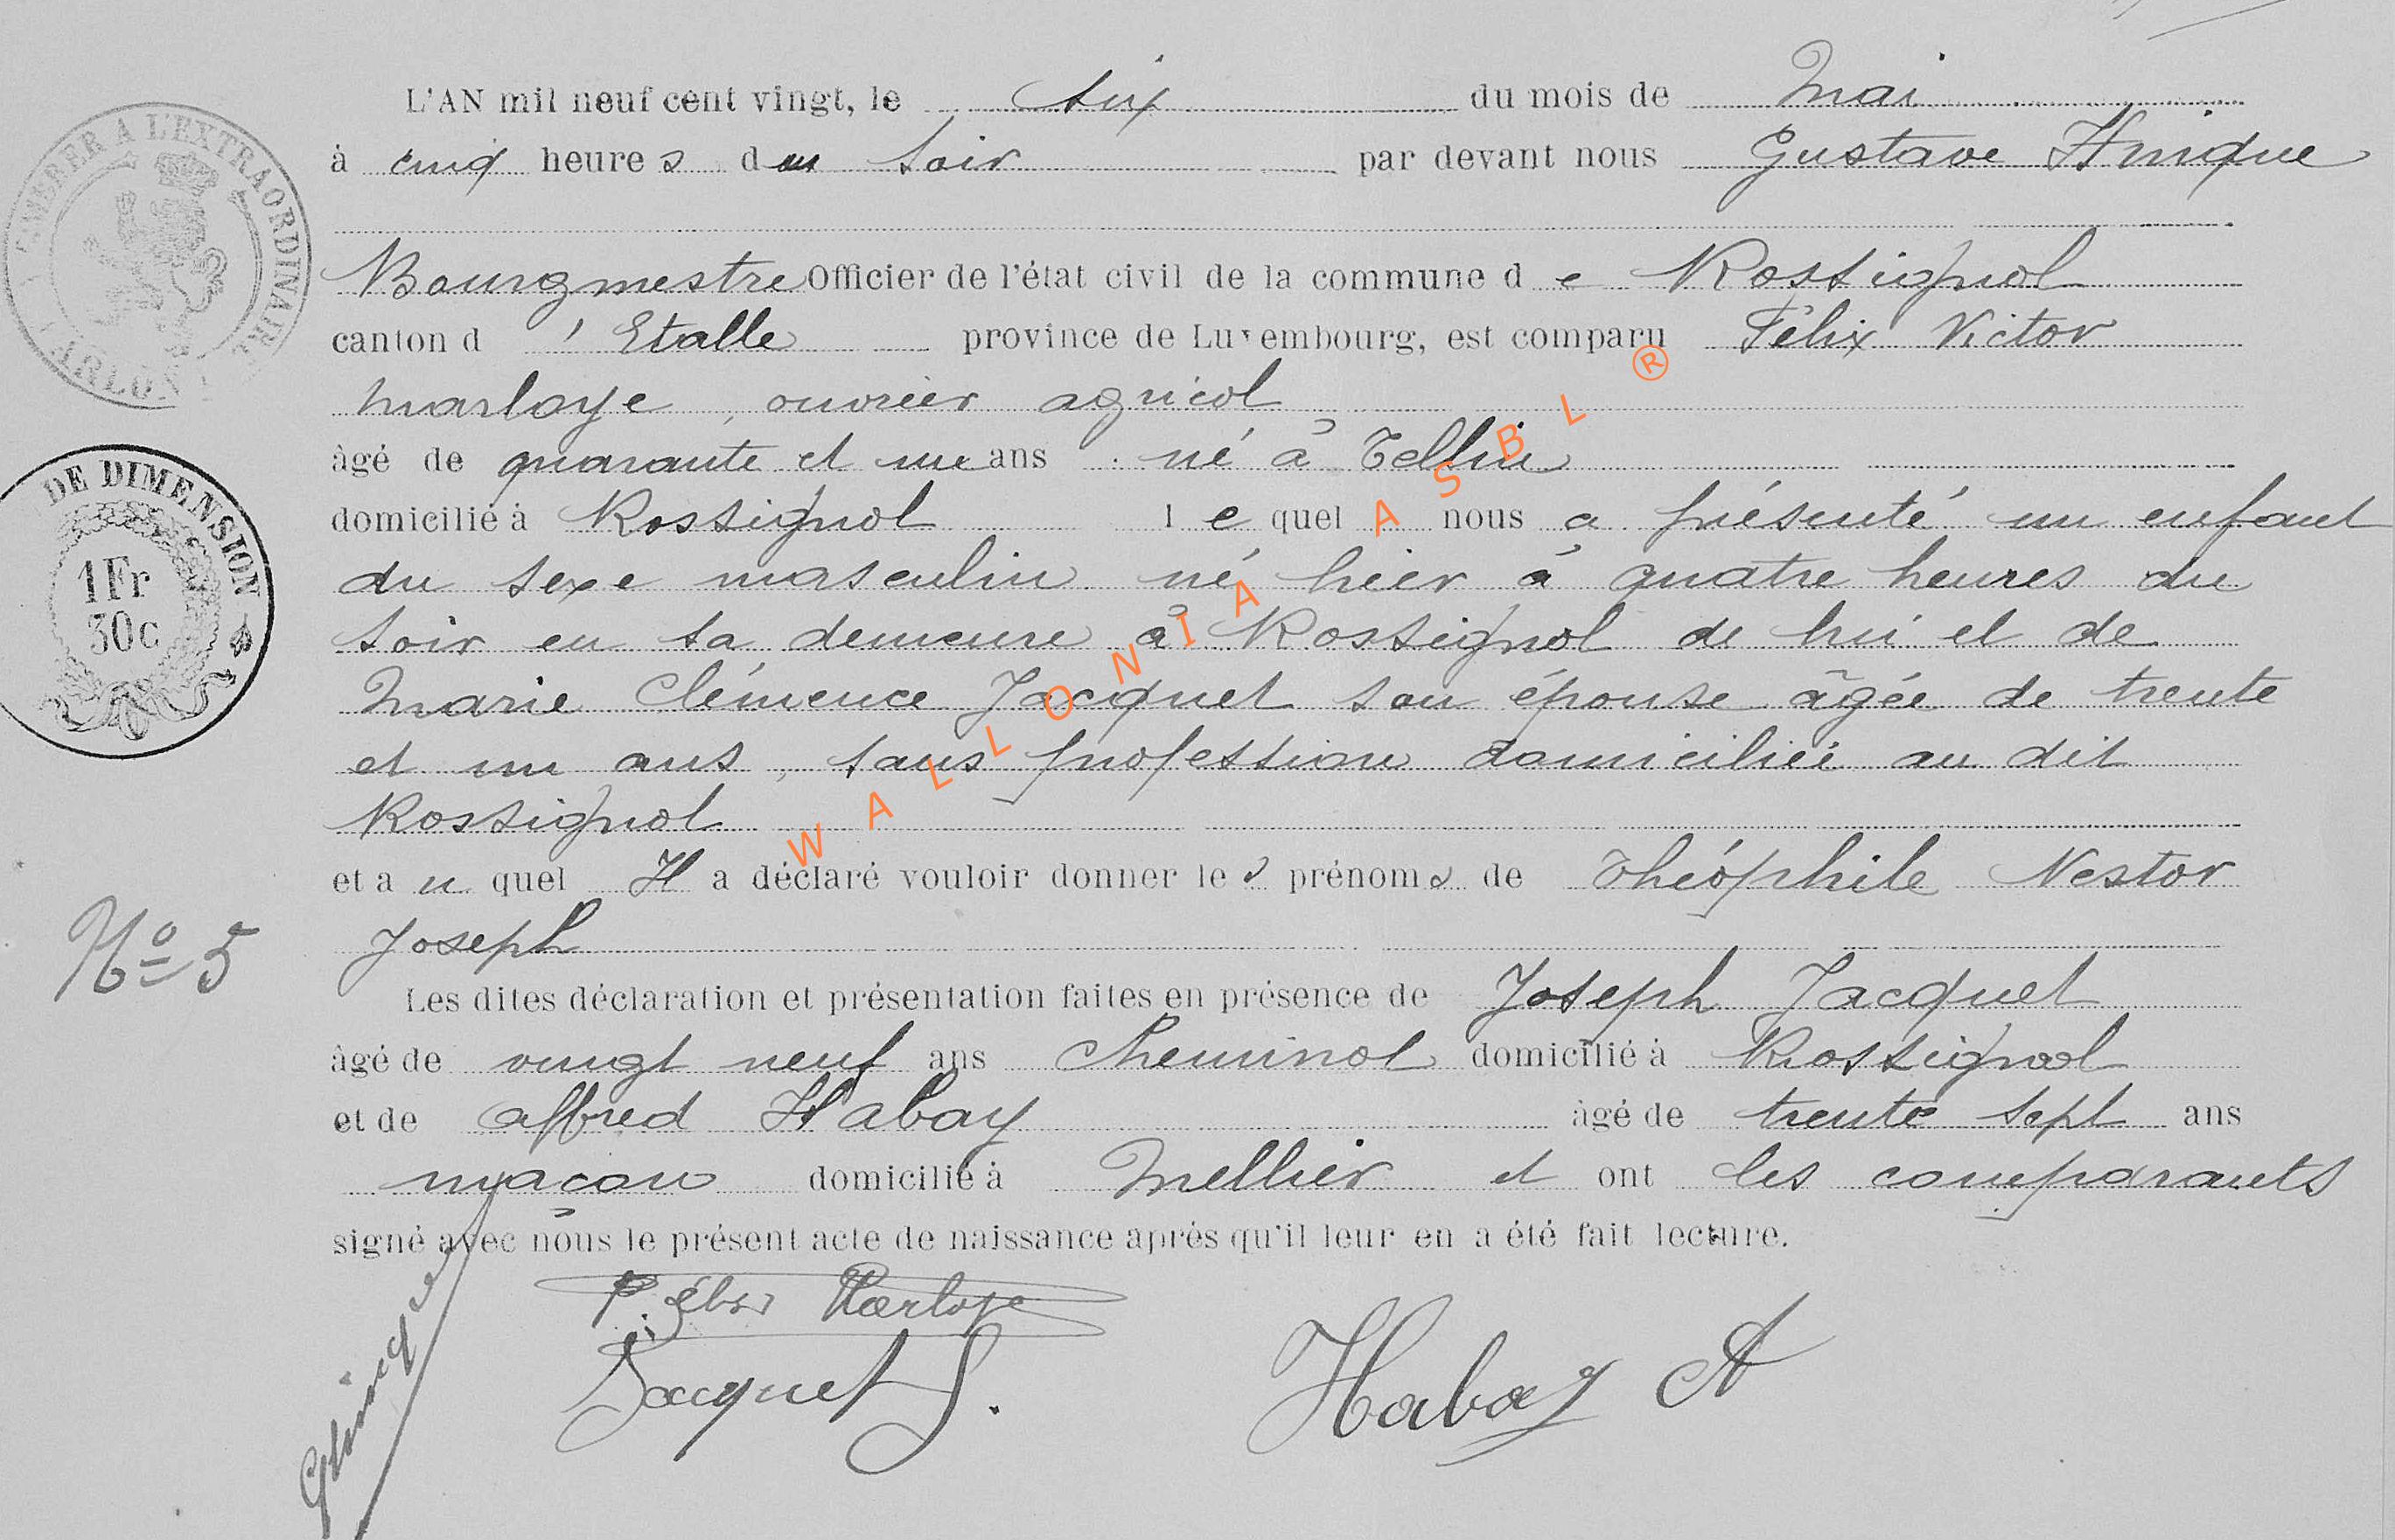 L'AN mil neuf cent vingt, le six du mois de Mai
à cinq heures du soir par devant nous Gustave Hinique
Bourgmestre Officier de l'état civil de la commune de Rossignol
canton d'Etalle province de Luxembourg, est comparu Félix Victor
Marloye, ouvrier agricol
âgé de quarante et un ans né à Tellin
domicilié à Rossignol lequel nous a présenté un enfant
du sexe masculin né hier à quatre heures du
soir en sa demeure à Rossignol de lui et de
Marie Clémence Jacquet son épouse âgée de trente
et un ans, sans profession domiciliée au dit
Rossignol
et auquel Il a déclaré vouloir donner les prénoms de Théophile Nestor
Joseph
Les dites déclaration et présentation faites en présence de Joseph Jacquet
âgé de vingt neuf ans Cheminot domicilié à Rossignol
et de Alfred Habay âgé de trente sept ans
maçon domicilié à Mellier et ont les comparants
signé avec nous le présent acte de naissance après qu'il leur en a été fait lecture.
Marloye
Jacquet J.
Habay A
G Hinique
TIMBRER A L'EXTRAORDINAIRE
ARLON
DE DIMENSION
1Fr
30c
No 5
WALLONIA ASBL ®